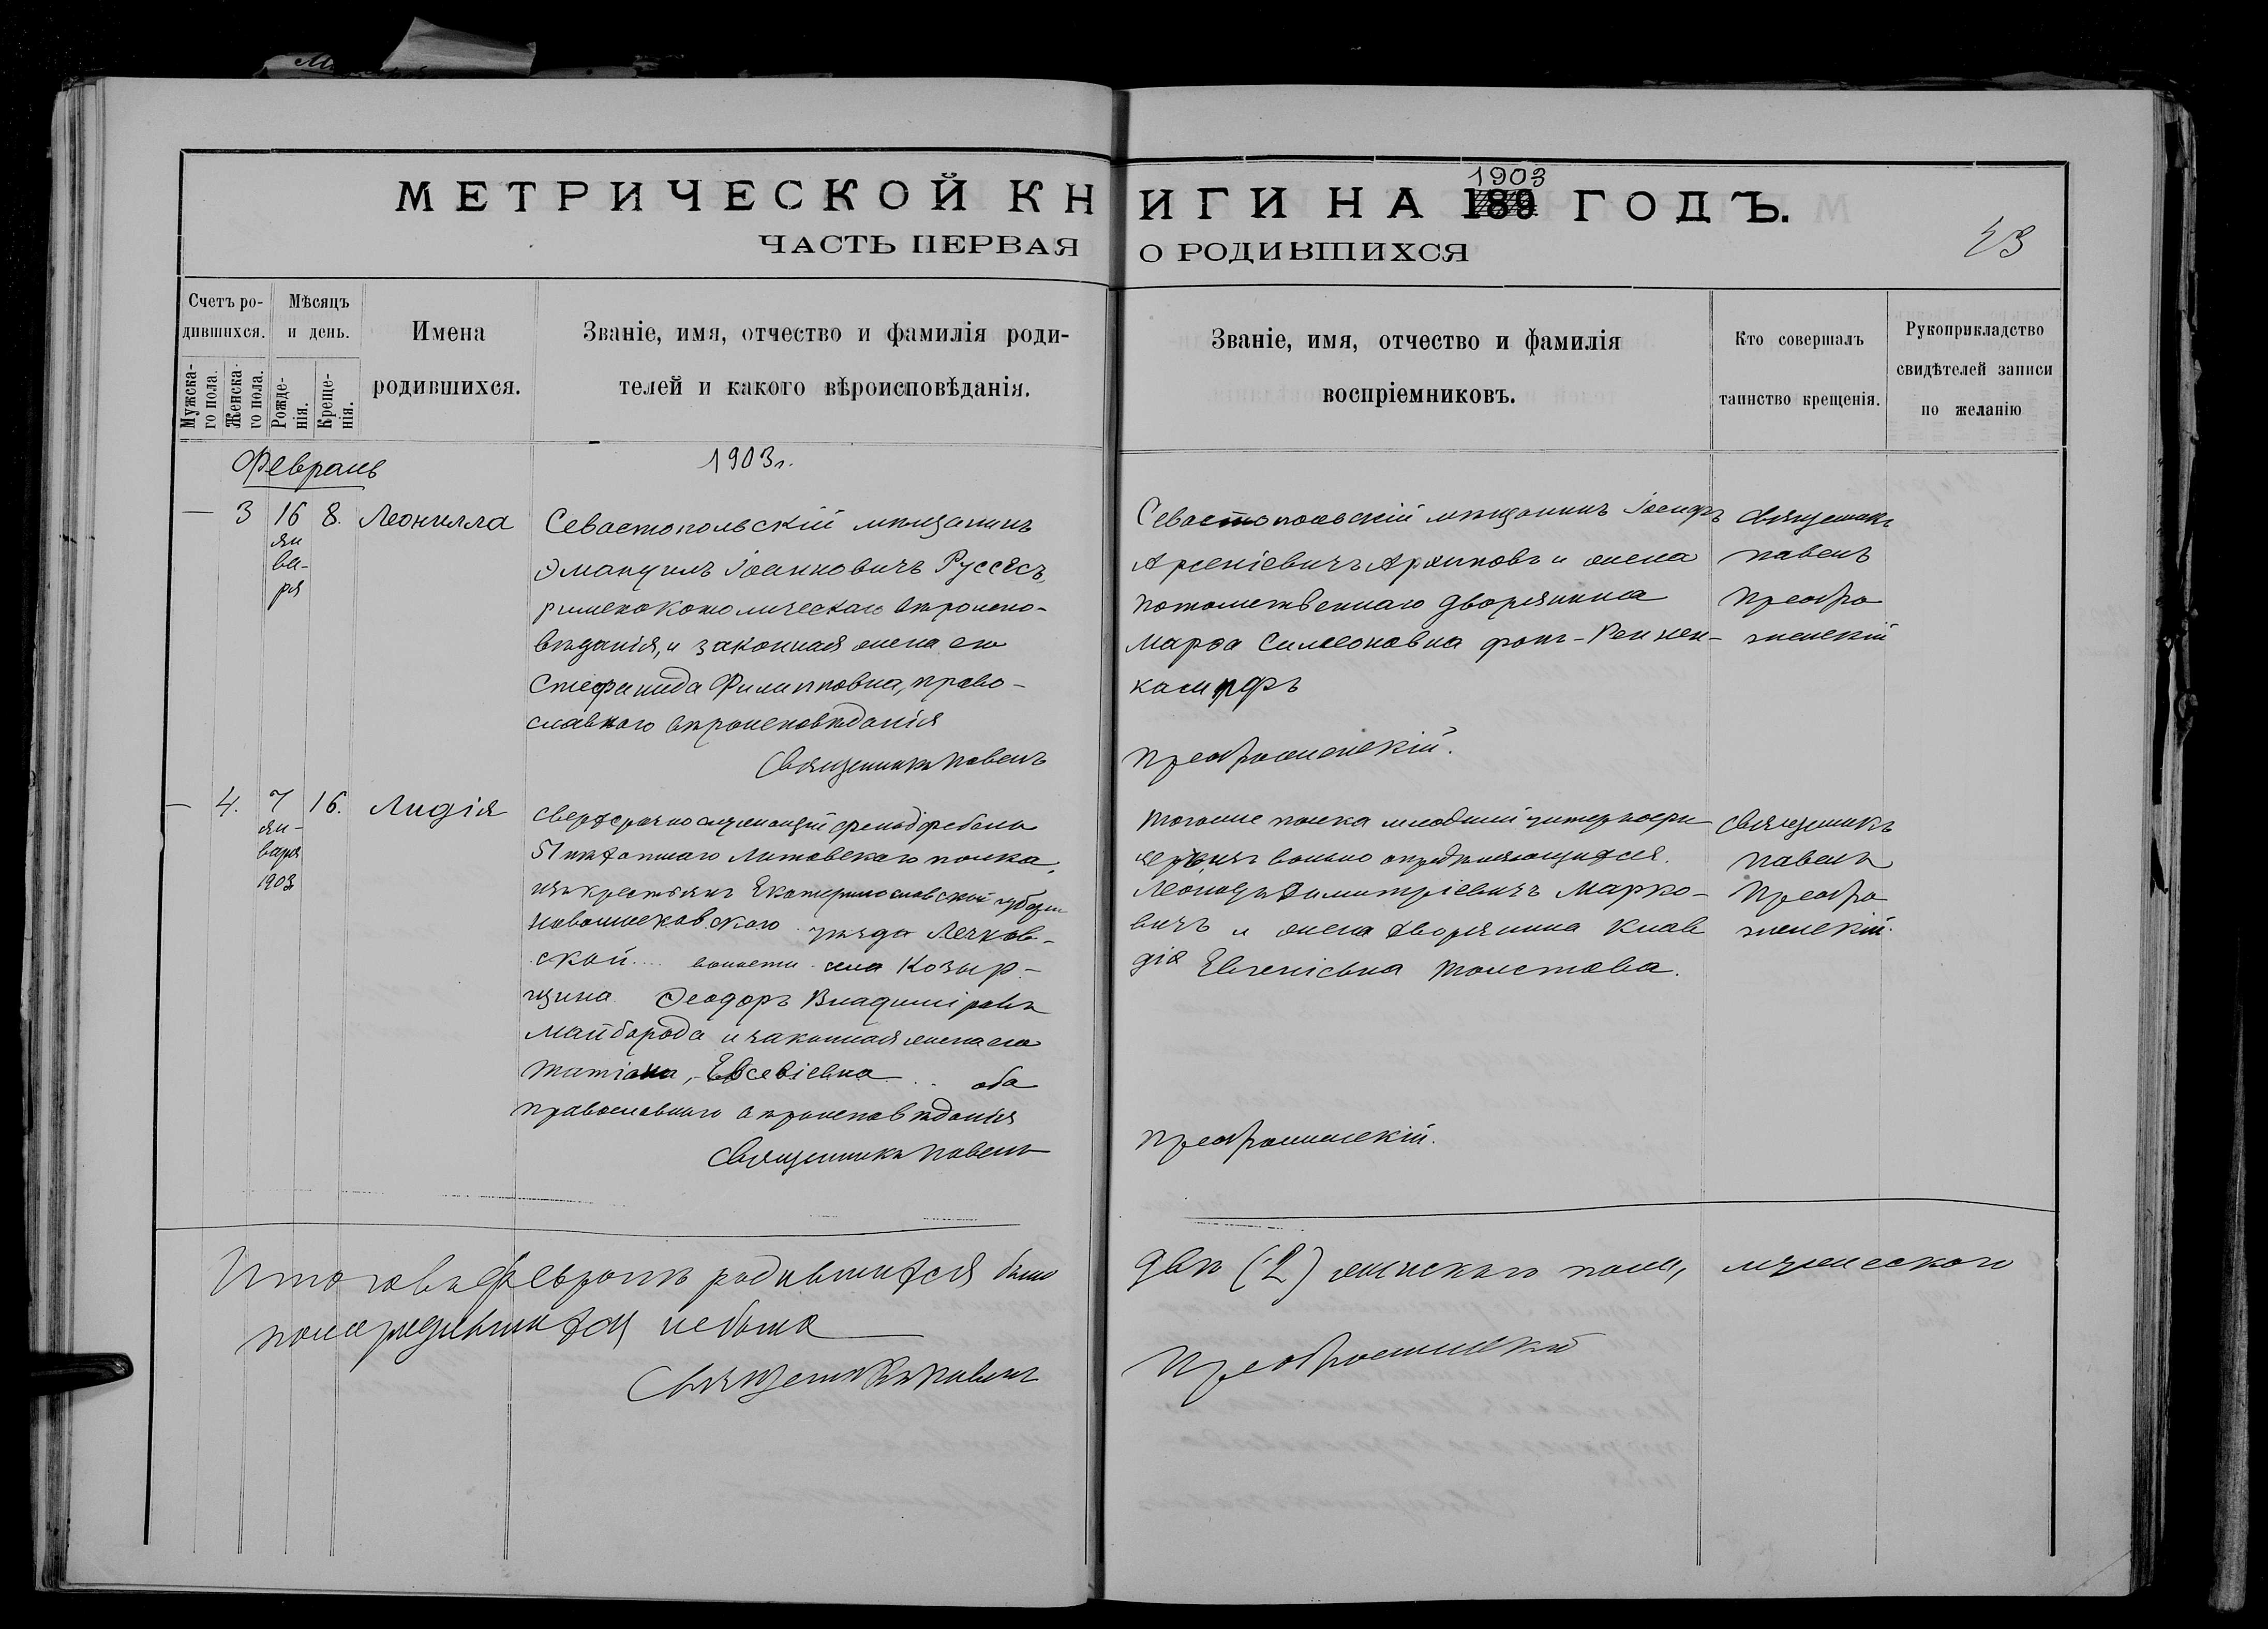 МЕТРИЧЕСКОЙ КНИГИ НА 1903 ГОДЪ.
ЧАСТЬ ПЕРВАЯ О РОДИВШИХСЯ
23
Счетъ ро-
дившихся.
Мужска-
го пола.
Женска-
го пола.
Мѣсяцъ
и день.
Рожде-
нія.
Креще-
нія.
Имена
родившихся.
Званіе, имя, отчество и фамилія роди-
телей и какого вѣроисповѣданія.
Званіе, имя, отчество и фамилія
воспріемниковъ.
Кто совершалъ
таинство крещенія.
Рукоприкладство
свидѣтелей записи
по желанію
Февраль
1903 г.
— 3 16 8. Леонилла
ян
ва-
ря
Севастопольскій мѣщанинъ
Эмануилъ Іоанновичъ Руссесъ,
римскокатолическаго вѣроиспо-
вѣданія, и законная жена его
Стефанида Филипповна, право-
славнаго вѣроисповѣданія
Священникъ Павелъ
Севастопольскій мѣщанинъ Іосифъ
Арсеніевичъ Архиповъ и жена
потомственнаго дворянина
Марѳа Симеоновна фонъ-Реннен-
кампфъ
Преображенскій.
Священникъ
Павелъ
Преобра
женскій
— 4. 7 16. Лидія
ян-
варя
1903
Сверхсрочнослужащій фельдфебель
51 пѣхотнаго Литовскаго полка,
изъ крестьянъ Екатеринославской губерніи
Новомосковскаго уѣзда Личков-
ской волости села Козыр-
щина Ѳеодоръ Владиміровъ
Майборода и законная жена его
Татіана, Евсевіевна оба
православнаго вѣроисповѣданія
Священникъ Павелъ
Тогоже полка младшій унтеръ офи
церъ изъ вольно опредѣляющихся
Леонидъ Димитріевичъ Марко-
вичъ и жена дворянина Клав
дія Евгеніевна Толстова.
Преображенскій.
Священникъ
Павелъ
Преобра
женскій.
Итого въ Февралѣ родившихся было двѣ (2) женскаго пола, мужескаго
пола родившихся не было
Священникъ Павелъ Преображенскій